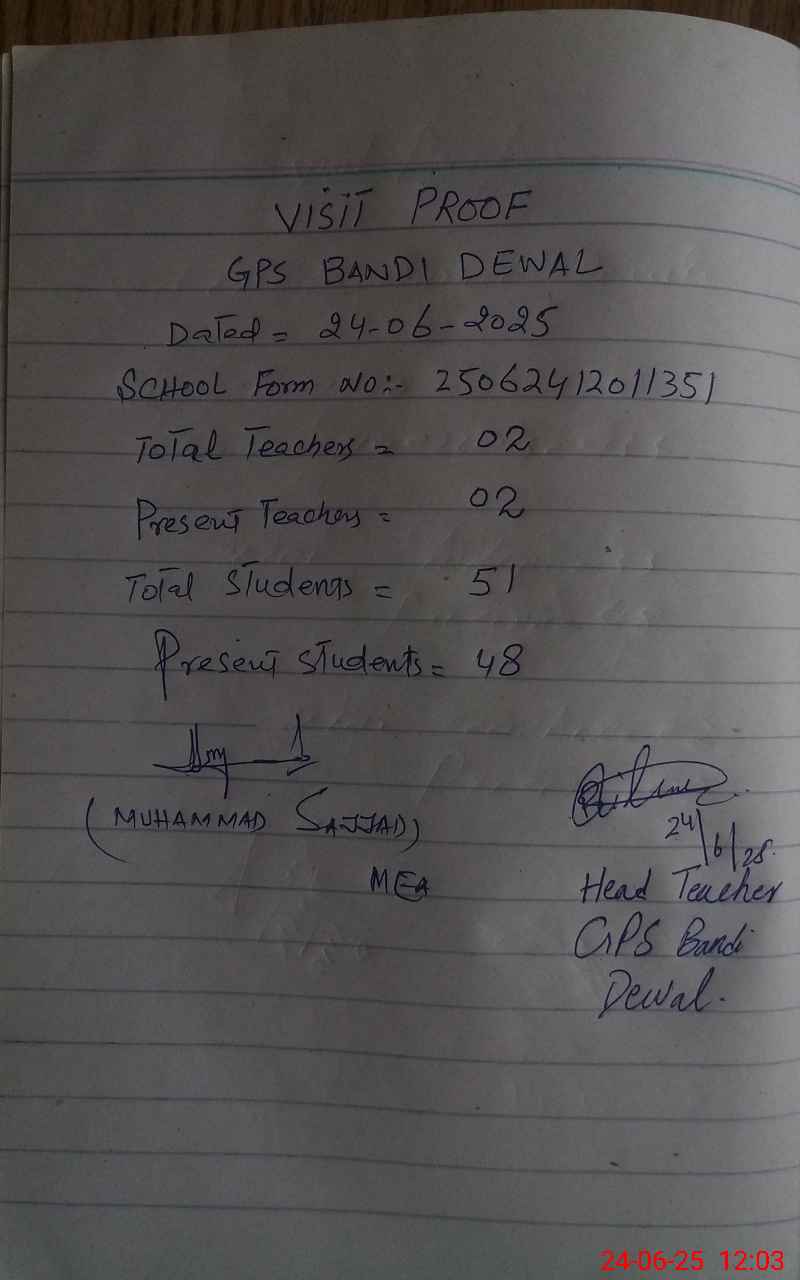 VISIT PROOF
GPS BANDI DEWAL
Dated = 24-06-2025
SCHOOL Form No:- 25062412011351
Total Teachers = 02
Present Teachers = 02
Total Students = 51
Present Students = 48
(MUHAMMAD SAJJAD)
MEA
24/6/25.
Head Teacher
GPS Bandi
Dewal.
24-06-25 12:03